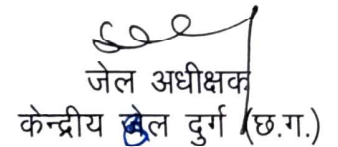 जेल अधीक्षक
केन्द्रीय जेल दुर्ग (छ.ग.)